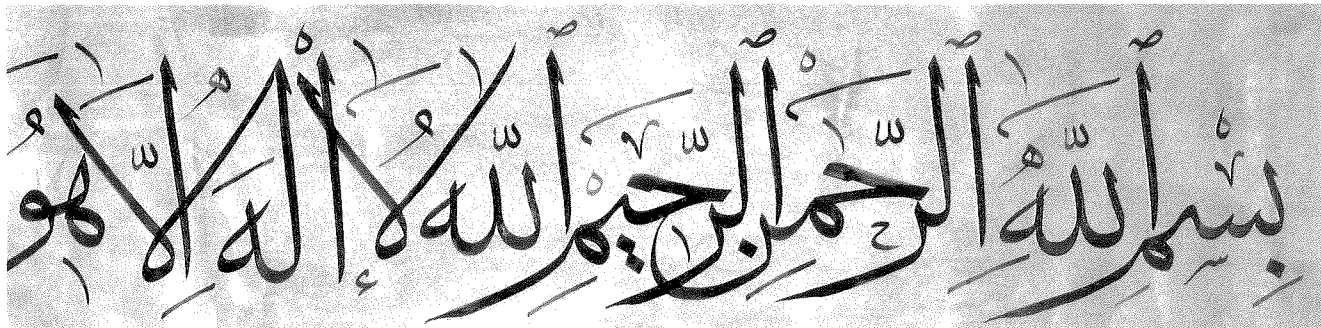 بِسْمِ ٱللَّهِ ٱلرَّحْمَٰنِ ٱلرَّحِيمِ ٱللَّهُ لَا إِلَٰهَ إِلَّا هُوَ